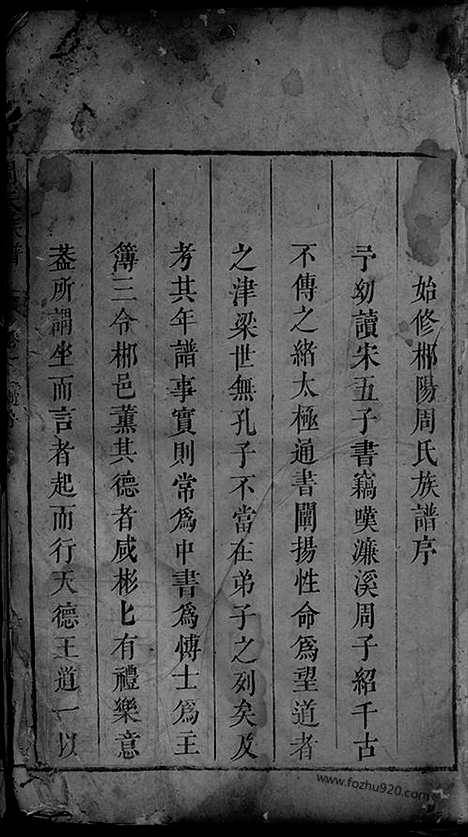 始修郴陽周氏族譜序
予幼讀宋五子書竊嘆濂溪周子紹千古
不傳之緒太極通書闡揚性命為望道者
之津梁世無孔子不當在弟子之列矣及
考其年譜事實則常為中書為博士為主
簿三令郴邑薰其德者咸彬匕有禮樂意
葢所謂坐而言者起而行天德王道一以
www.fozhu920.com